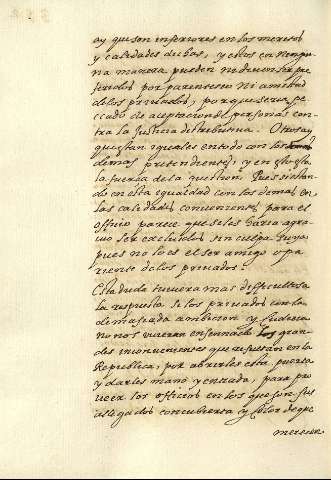 ay que son inferiores en los meritos
y calidades dichas, y estos en ningu
na manera pueden ni deven ser pre
feridos por parentesco ni amistad
de los privados, porque seria pe
ccado de aceptacion de personas con
tra la Justicia distributiva. Otros ay
que stan iguales en todo con los
demas pretendientes, y en estos es
la fuerza de la question. Pues estan
do en esta igualdad con los demas en
las calidades convenientes para el
officio parece que se les haria agra
vio ser excluidos sin culpa suya
pues no lo es el ser amigo o pa
riente de los privados.
Esta duda tuviera mas dificultosa
la respuesta si los privados con la
demasiada ambicion y
no nos uvieran enseñado los gran
des inconvenientes que resultan en la
Republica, por abrirles esta puerta
y darles mano y entrada, para pro
veer los officios en los que son sus
allegados con cubierta y color de que
merecen